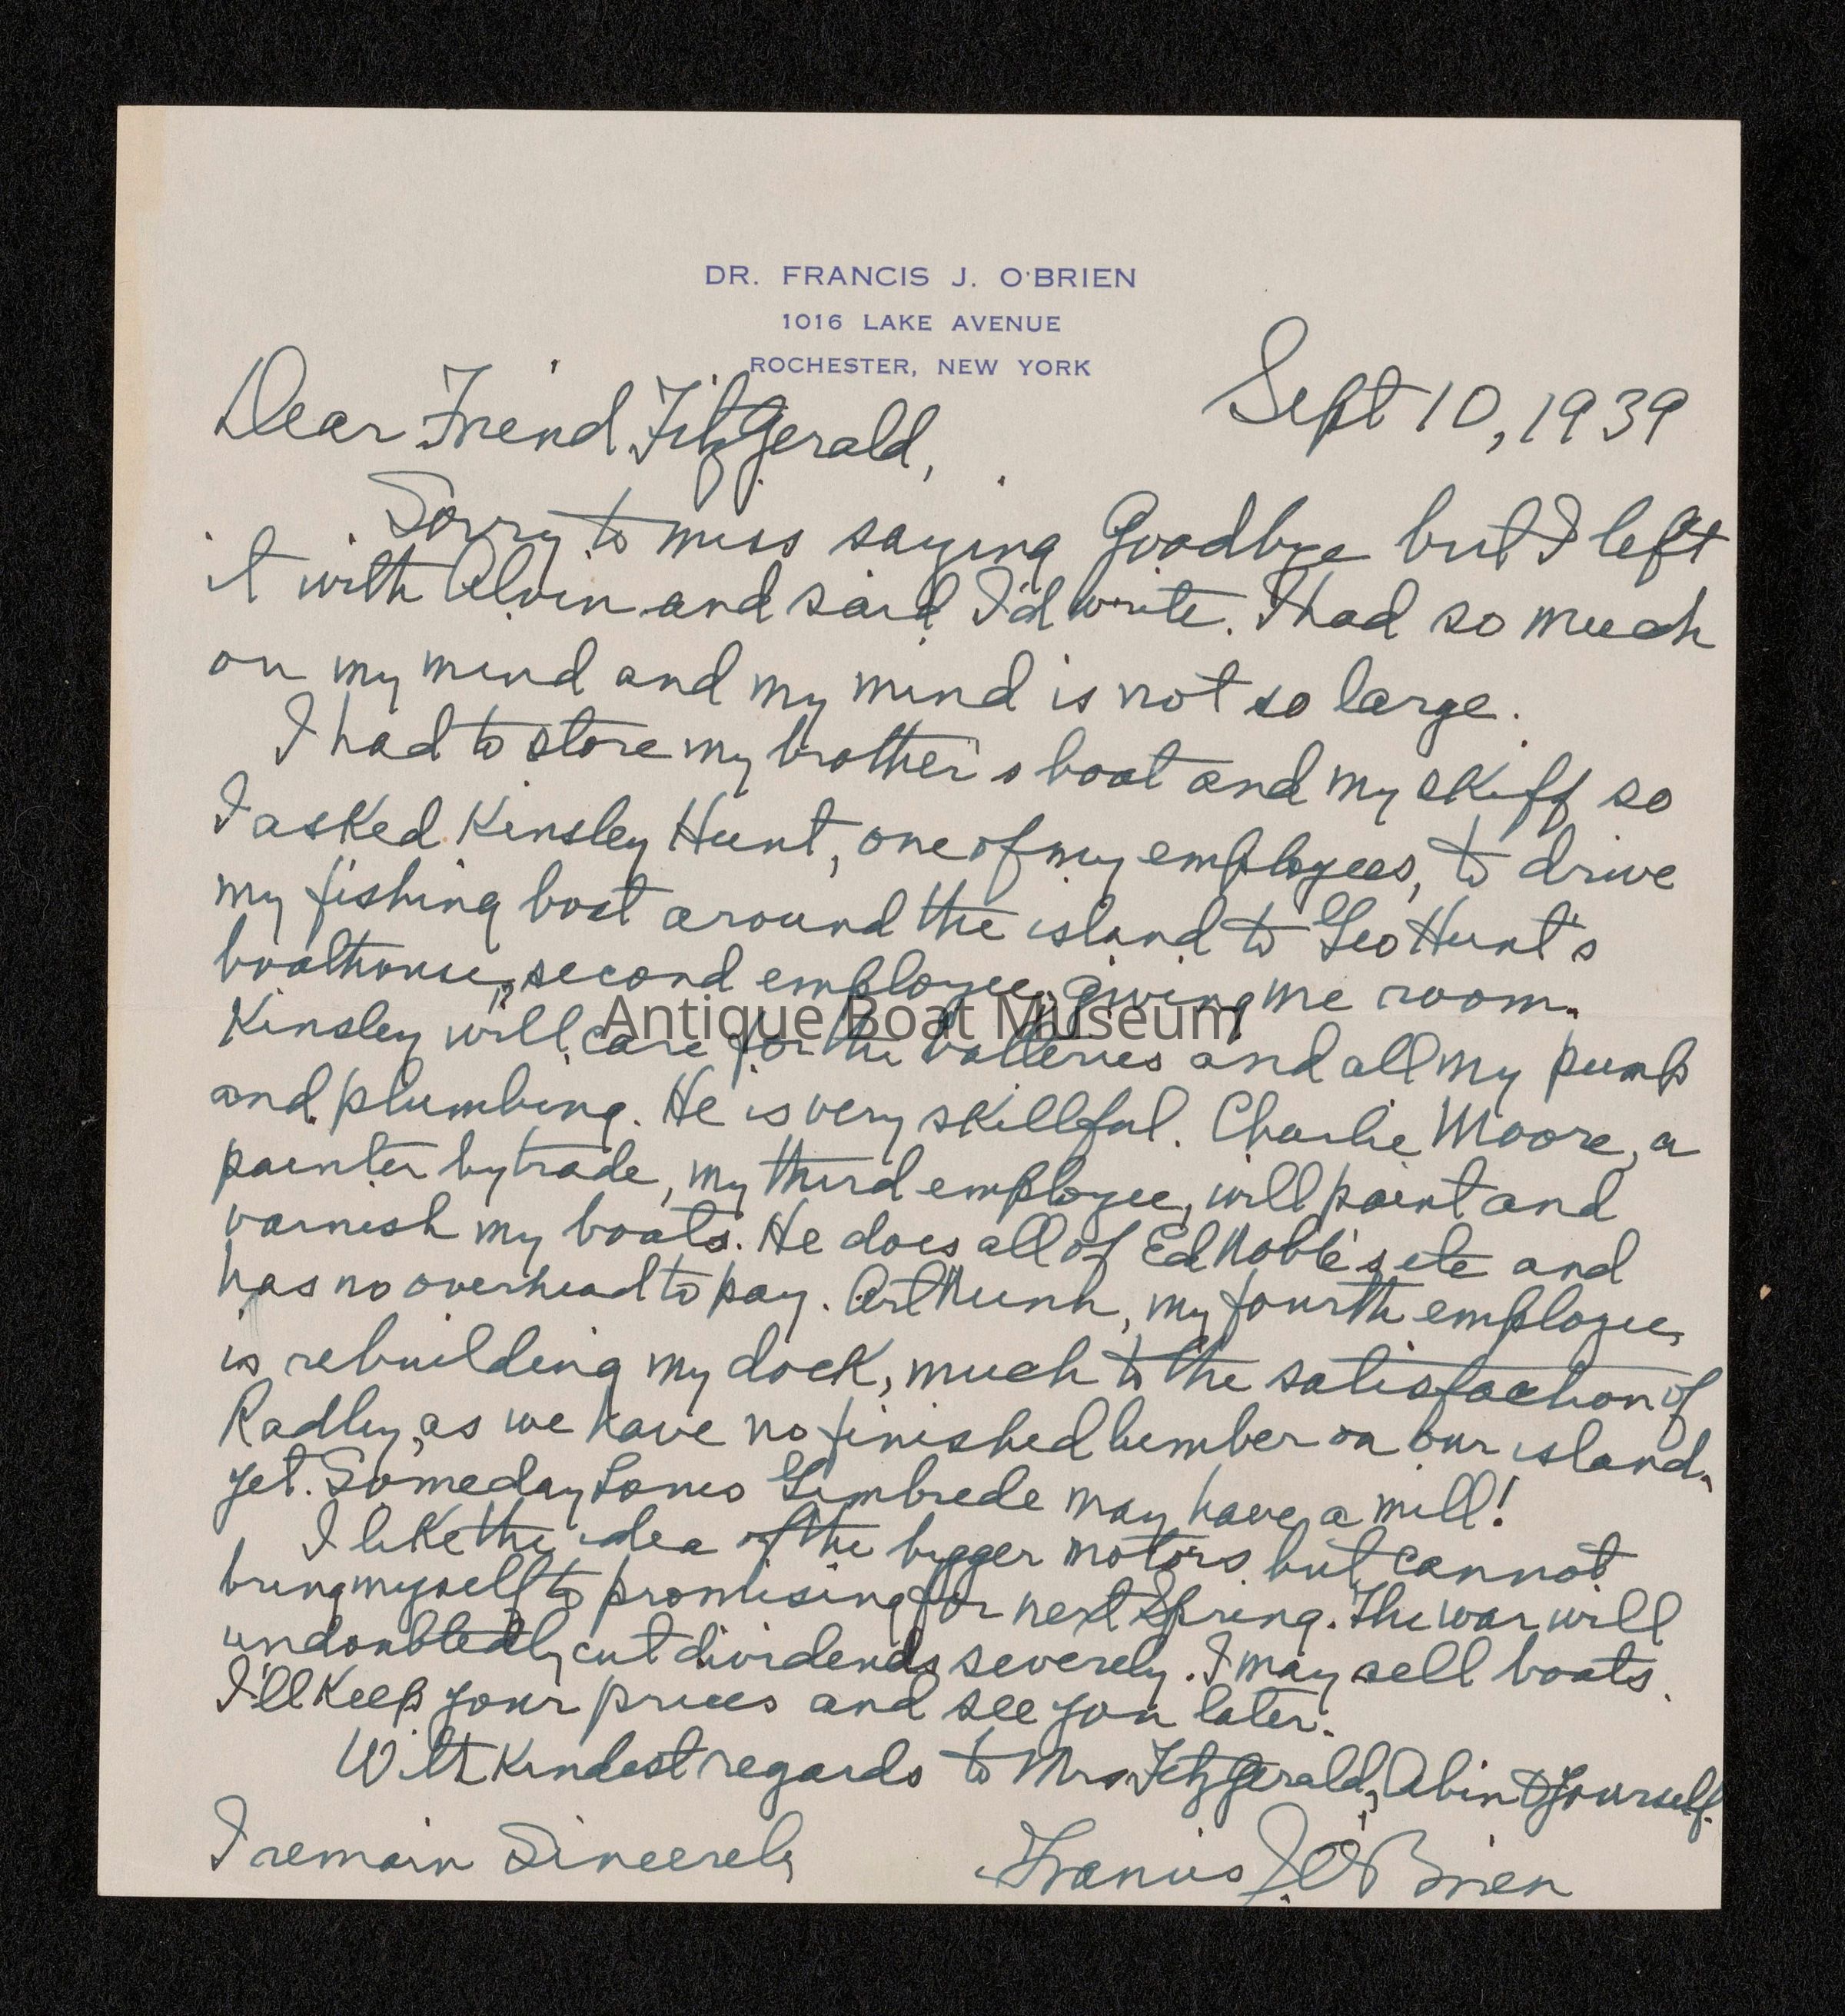 DR. FRANCIS J. O'BRIEN
1016 LAKE AVENUE
ROCHESTER, NEW YORK
Sept 10, 1939
Dear Friend FitzGerald,
Sorry to miss saying Goodbye but I left
it with Alvin and said I'd write. I had so much
on my mind and my mind is not so large.
I had to store my brother's boat and my skiff so
I asked Kinsley Hunt, one of my employees, to drive
my fishing boat around the island to Geo Hunt's
boathouse, second employee, giving me room.
Antique Boat Museum
Kinsley will care for the batteries and all my pump
and plumbing. He is very skillful. Charlie Moore, a
painter by trade, my third employee, will paint and
varnish my boats. He does all of Ed Noble's etc and
has no overhead to pay. Art Nunn, my fourth employee,
is rebuilding my dock, much to the satisfaction of
Radley, as we have no finished lumber on our island
yet. Someday Louis Gimbrede may have a mill!
I like the idea of the bigger motors but cannot
bring myself to promising for next Spring. The war will
undoubtedly cut dividends severely. I may sell boats.
I'll keep your prices and see you later.
With kindest regards to Mrs FitzGerald, Alvin & yourself.
I remain Sincerely
Francis J O'Brien